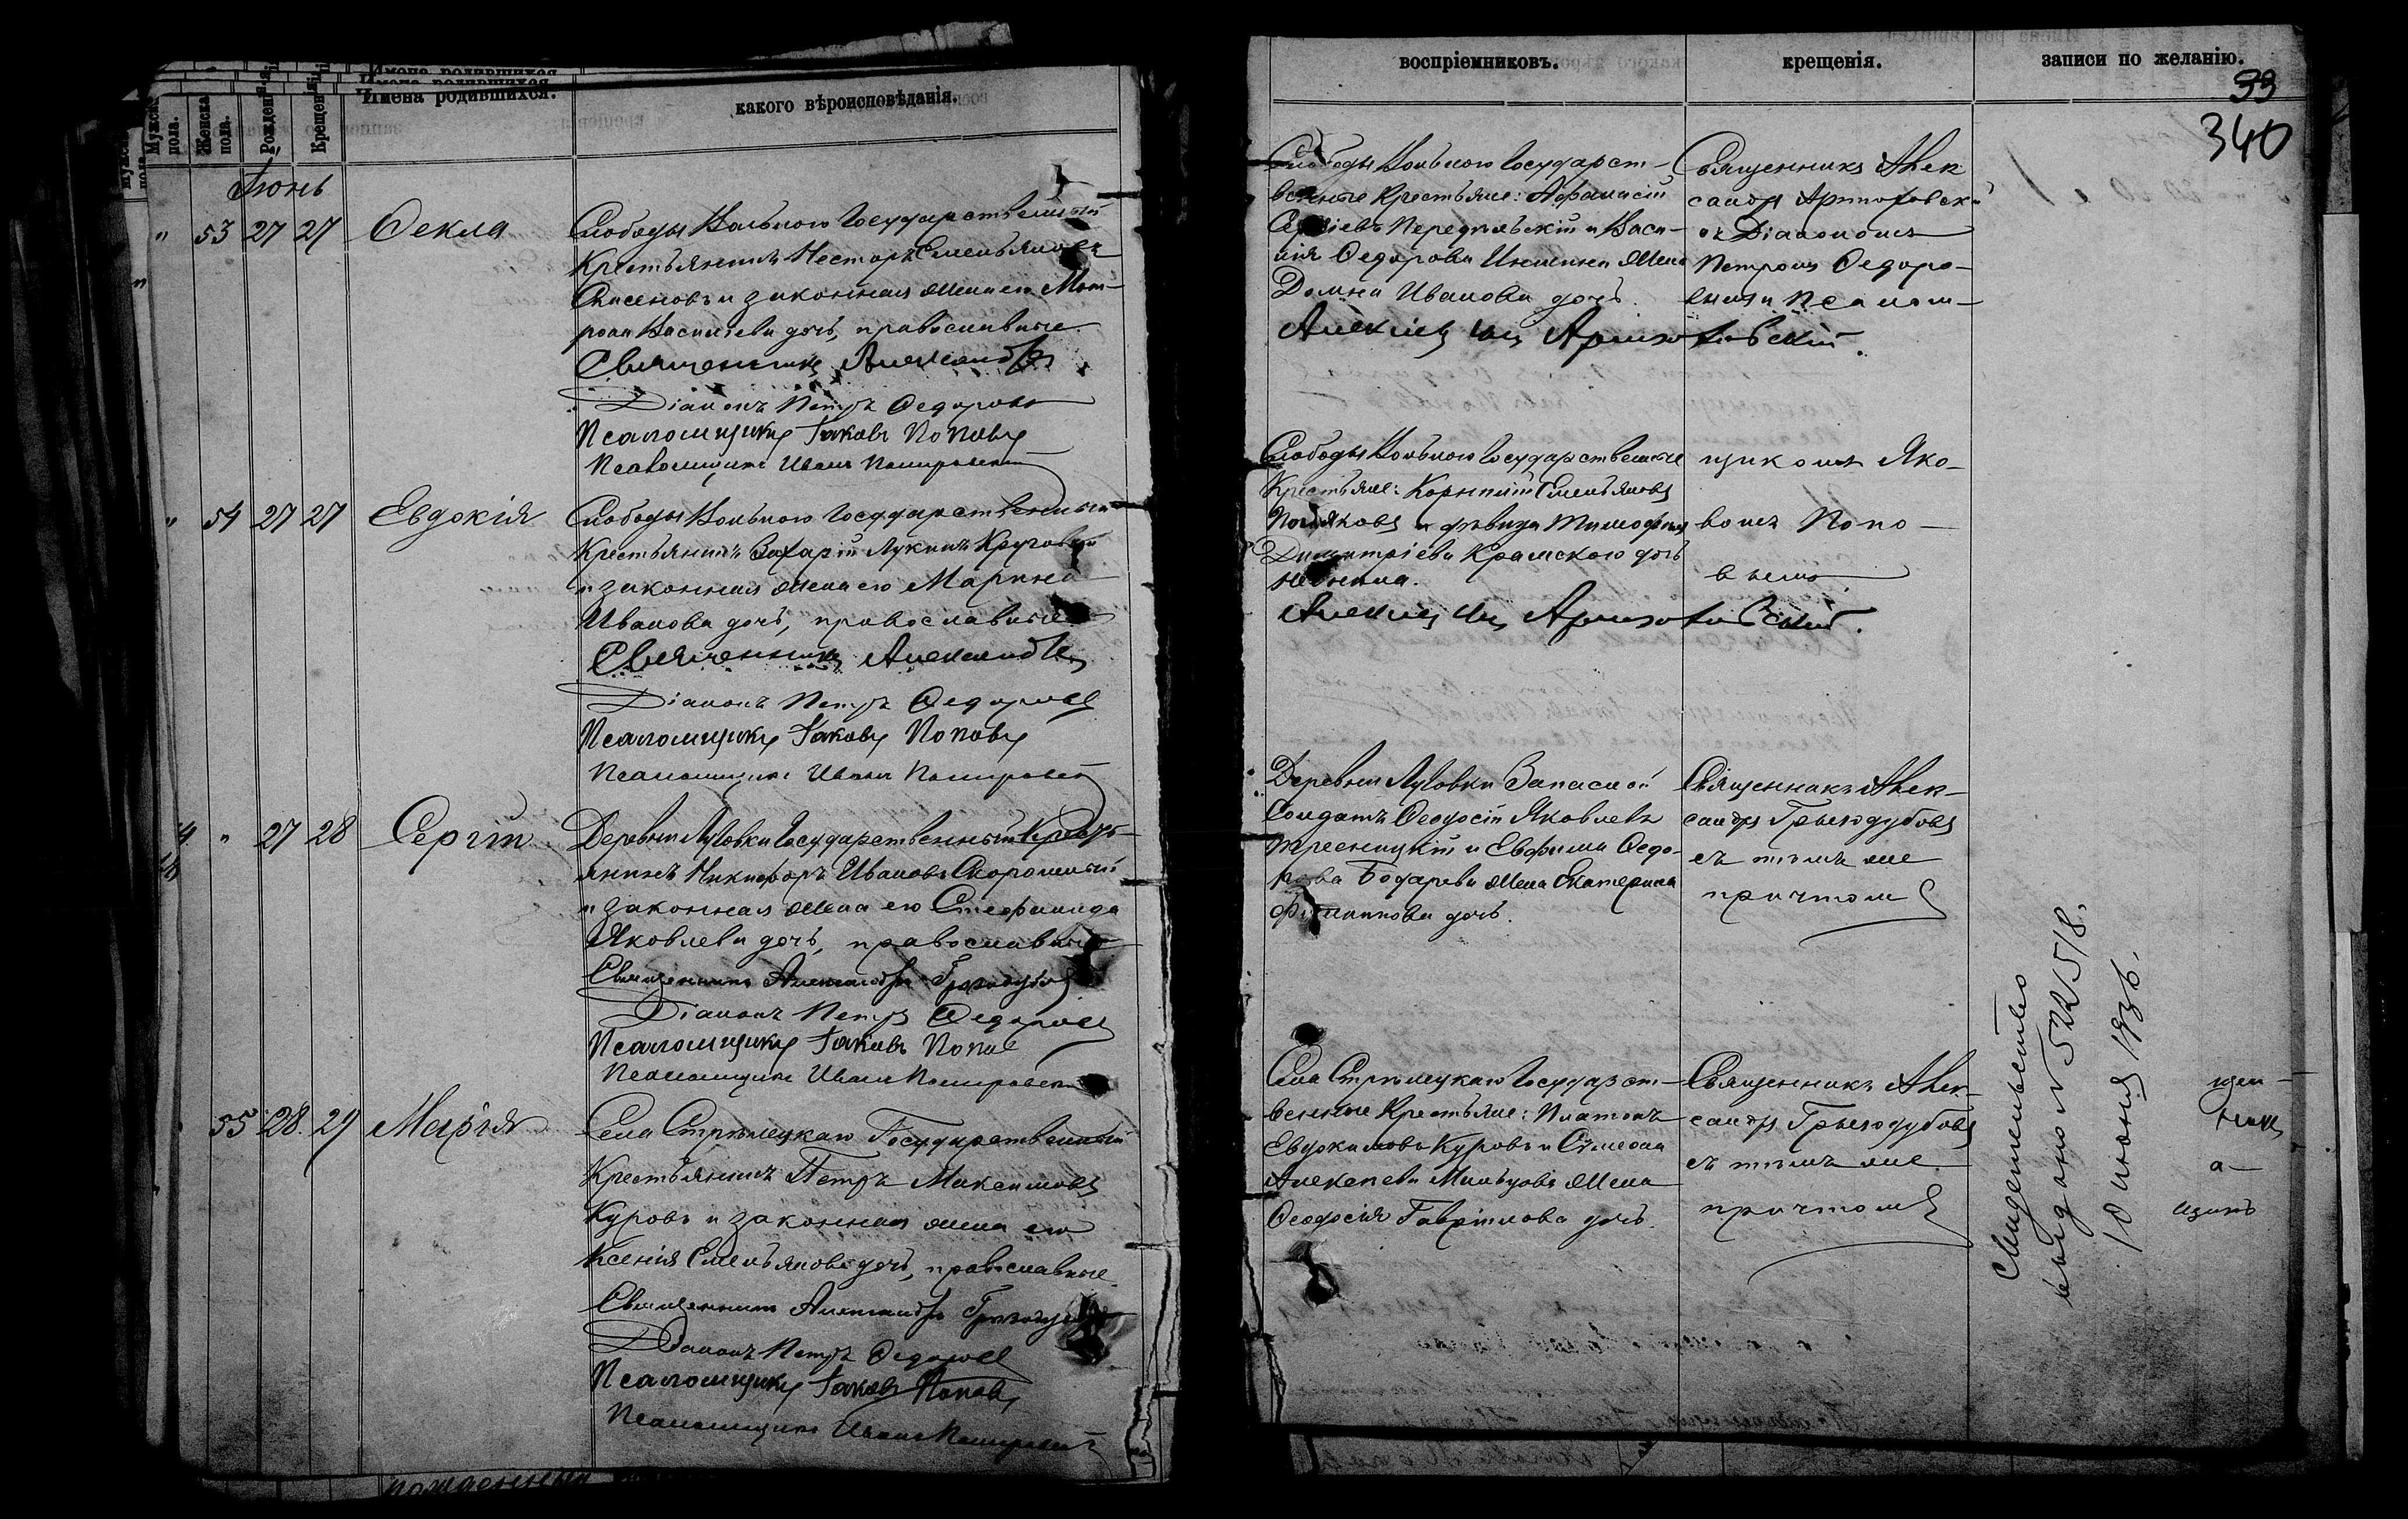 Имена родившихся.
какого вѣроисповѣданія.
Мужска пола.
Женска пола.
Рожденія
Крещенія
Іюнь
" 53 27 27 Ѳекла
Слободы Вольного Государственный
Крестьянинъ Несторъ Емельяновъ
и законная жена его Мат-
рона Васильева дочь, православные.
Священникъ Александръ
Діаконъ Петръ Ѳедоровъ
Псаломщикъ Іаковъ Поповъ
Псаломщикъ Иванъ
" 54 27 27 Евдокія
Слободы Вольного Государственный
Крестьянинъ Захарій Лукинъ Круговой
и законная жена его Марина
Иванова дочь, православные
Священникъ Александръ
Діаконъ Петръ Ѳедоровъ
Псаломщикъ Іаковъ Поповъ
Псаломщикъ Иванъ
" 27 28 Сергій
Деревни Луговки Государственный Кресть-
янинъ Никифоръ Ивановъ
и законная жена его Стефанида
Яковлева дочь, православные
Священникъ Александръ Грызодубовъ
Діаконъ Петръ Ѳедоровъ
Псаломщикъ Іаковъ Поповъ
Псаломщикъ Иванъ
55 28 29 Марія
Села Стрѣлецкаго Государственный
Крестьянинъ Петръ Максимовъ
Куровъ и законная жена его
Ксенія Емельянова дочь, православные.
Священникъ Александръ Грызодубовъ
Діаконъ Петръ Ѳедоровъ
Псаломщикъ Іаковъ Поповъ
Псаломщикъ Иванъ
воспріемниковъ.
крещенія.
записи по желанію.
99
340
Слободы Вольного Государст-
венные Крестьяне: Афанасій
и Васи-
лія Ѳедорова жена
Домна Иванова дочь.
Священникъ Алек
сандръ Артюховскій
съ Діакономъ
Петромъ Ѳедоро-
вымъ и Псалом-
Артюховскій.
Слободы Вольного Государственные
Крестьяне: Корнилій Емельяновъ
и дѣвица
Димитріева Крамского дочь
щикомъ Яко-
вомъ Попо-
вымъ
Артюховскій.
Деревни Луговки Запасной
Солдатъ Ѳеодосій Яковлевъ
и Ефима Ѳедо-
рова жена Екатерина
Филиппова дочь.
Священникъ Алек-
сандръ Грызодубовъ
съ тѣмъ же
причтомъ
Села Стрѣлецкаго Государст-
венные Крестьяне: Платонъ
Евдокимовъ Куровъ и Симеона
Алексѣева жена
Ѳеодосія Гавріилова дочь.
Священникъ Алек-
сандръ Грызодубовъ
съ тѣмъ же
причтомъ
Свидетельство
выдано № 522518.
10 июня 1936.